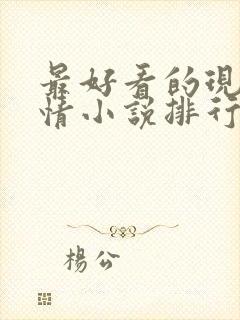 最好看的現
情小說排行
楊公